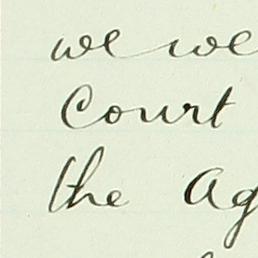 we we
Court
the Ag